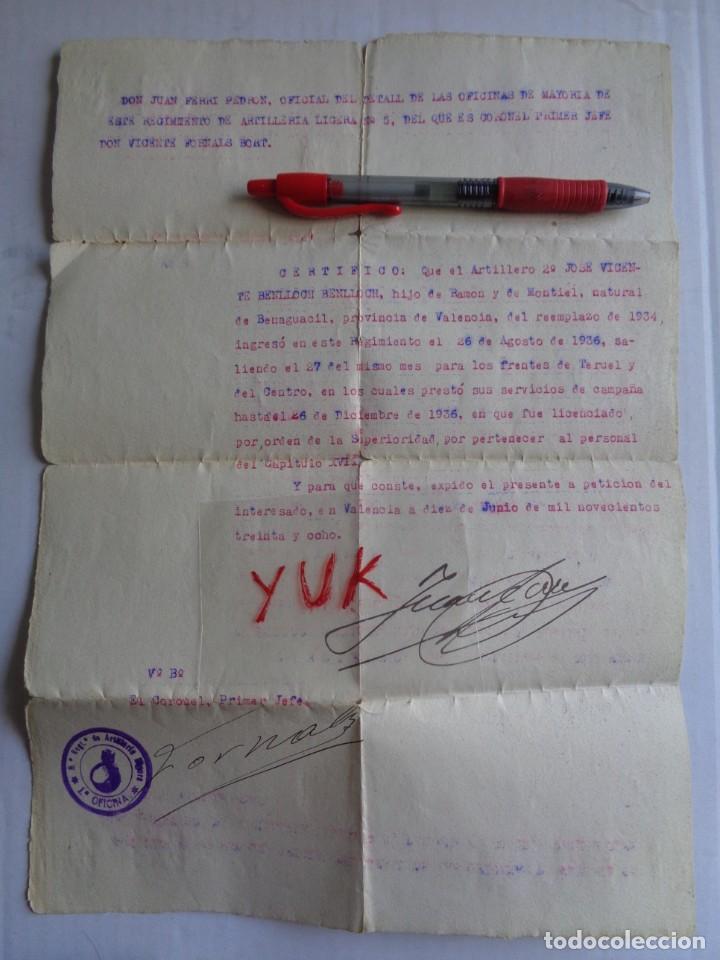 DON JUAN FERRI PEDRON, OFICIAL DEL DETALL DE LAS OFICINAS DE MAYORIA DE
ESTE REGIMIENTO DE ARTILLERIA LIGERA Nº 5, DEL QUE ES CORONEL PRIMER JEFE
DON VICENTE FORNALS BORT.
CERTIFICO: Que el Artillero 2º JOSE VICEN-
TE BENLLOCH BENLLOCH, hijo de Ramon y de Montiel, natural
de Benaguacil, provincia de Valencia, del reemplazo de 1934,
ingresó en este Rigimiento el 26 de Agosto de 1936, sa-
liendo el 27 del mismo mes para los frentes de Teruel y
del Centro, en los cuales prestó sus servicios de campaña
hasta el 26 de Diciembre de 1936, en que fue licenciado,
por orden de la Superioridad, por pertenecer al personal
del Capitulo XVII.
Y para que conste, expido el presente a peticion del
interesado, en Valencia a diez de Junio de mil novecientos
treinta y ocho.
YUK
Vº Bº
El Coronel, Primer Jefe,
Fornals
Regto. de Artillería Ligera
OFICINA
todocoleccion